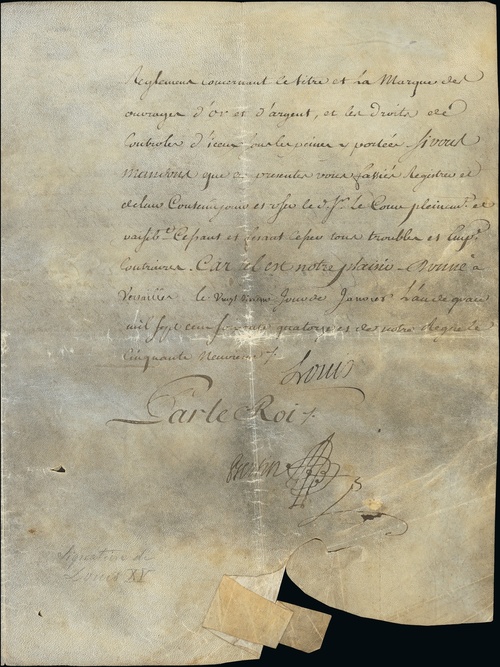 Reglement concernant le titre et la Marque des
ouvrages d'or et d'argent, et les droits de
Controles d'iceux sous les peines y portées. Si vous
mandons que ces presentes vous fassiés Registrer et
de leur Contenu jouir et user le d. Sr. Le pleinemt. et
paisibt. Cessant et faisant cesser tous troubles et Emp.
Contraires. Car tel est notre plaisir. Donné a
Versailles le Vingt Jour de Janvier L'an de grace
mil sept cent soixante quatorze et de notre Regne le
Cinquante Neuvieme ./.
Louis
Par le Roi ./.
Signature de
Louis XV